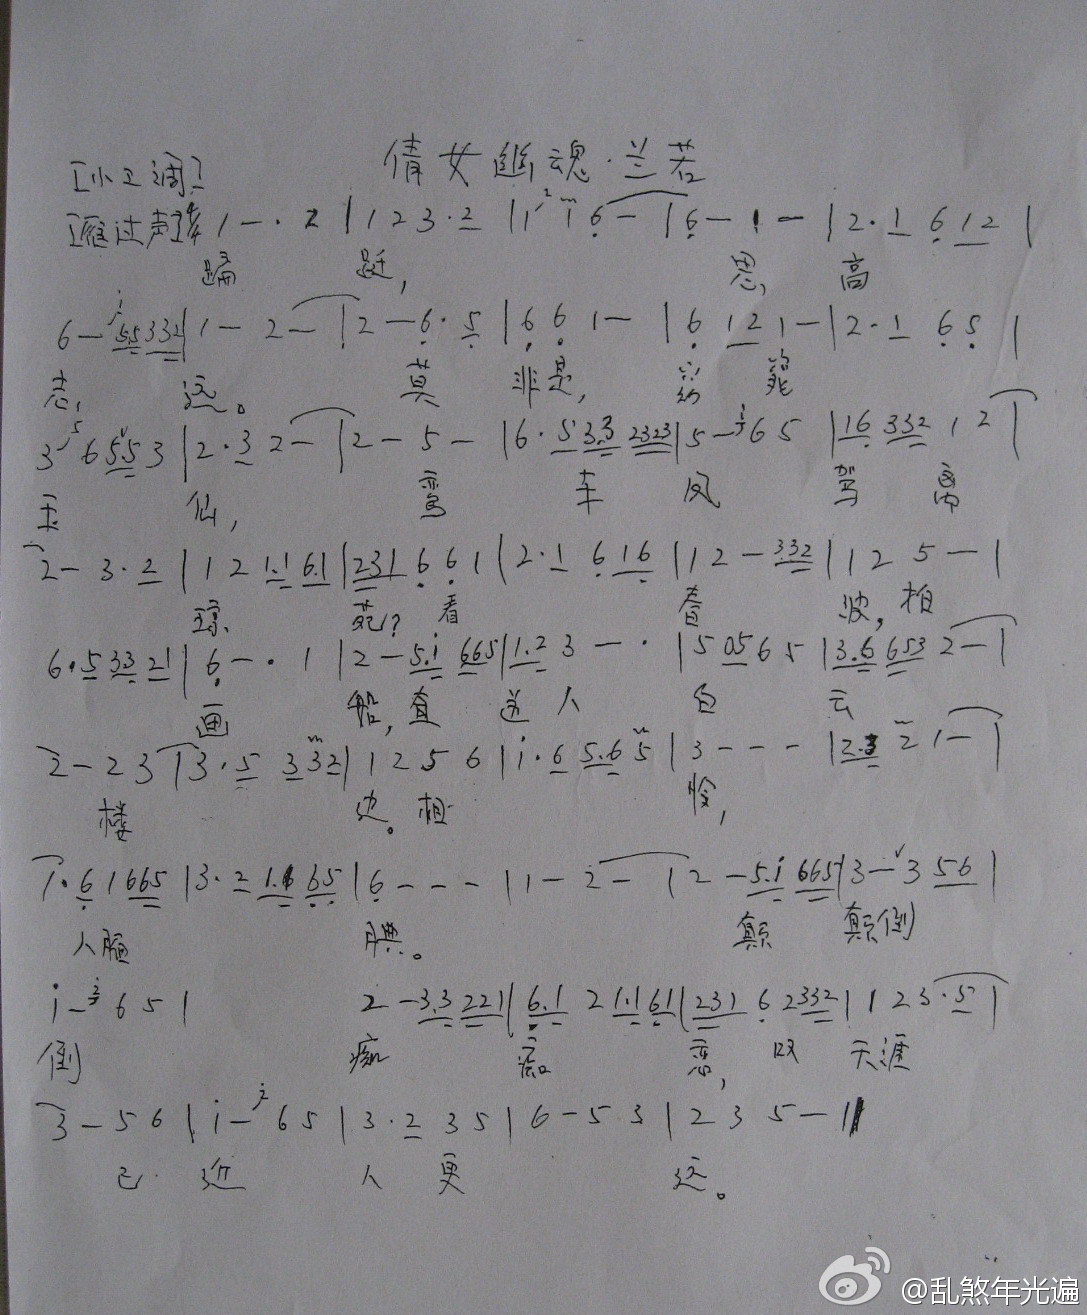 倩女幽魂·兰若
[小工调]
[雁过声] 1 - · 2 | 1 2 3 · 2 | 1 i 6 - | 6 - 1 - | 2 · 1 6 1 2 |
蹁 跹, 思, 高
6 - 5 5 3 3 2 | 1 - 2 - | 2 - 6 · 5 | 6 6 1 - | 6 1 2 1 - | 2 · 1 6 5 |
志, 远。 莫 非是,
3 6 5 5 3 | 2 · 3 2 - | 2 - 5 - | 6 · 5 3 3 2 3 2 3 | 5 - 6 5 | 1 6 3 3 2 1 2 |
玉 仙, 鸾 车 凤 驾 离
2 - 3 · 2 | 1 2 1 · 1 6 · 1 | 2 3 1 6 6 1 | 2 · 1 6 1 6 | 1 2 - 3 3 2 | 1 2 5 - |
琼 苑? 看 春 波, 相
6 · 5 3 3 2 1 | 6 - · 1 | 2 - 5 · i 6 6 5 | 1 · 2 3 - · | 5 0 5 6 5 | 3 · 6 6 5 3 2 - |
画 船, 直 送 人 白 云
2 - 2 3 | 3 · 5 3 3 2 | 1 2 5 6 | i · 6 5 · 6 5 | 3 - - - | 2 · 3 2 1 - |
楼 边。相 怜,
1 · 6 1 6 6 5 | 3 · 2 1 · 1 6 5 | 6 - - - | 1 - 2 - | 2 - 5 · i 6 6 5 | 3 - 3 5 6 |
人 腼 腆。 颠 颠倒
i - 6 5 | 2 - 3 · 3 2 2 1 | 6 · 1 2 1 · 1 6 1 | 2 3 1 6 2 3 3 2 | 1 2 3 · 5 |
倒 痴 痴 恋, 叹 天涯
3 - 5 6 | i - 6 5 | 3 · 2 3 5 | 6 - 5 3 | 2 3 5 - ||
已 近 人 更 远。
@乱煞年光遍